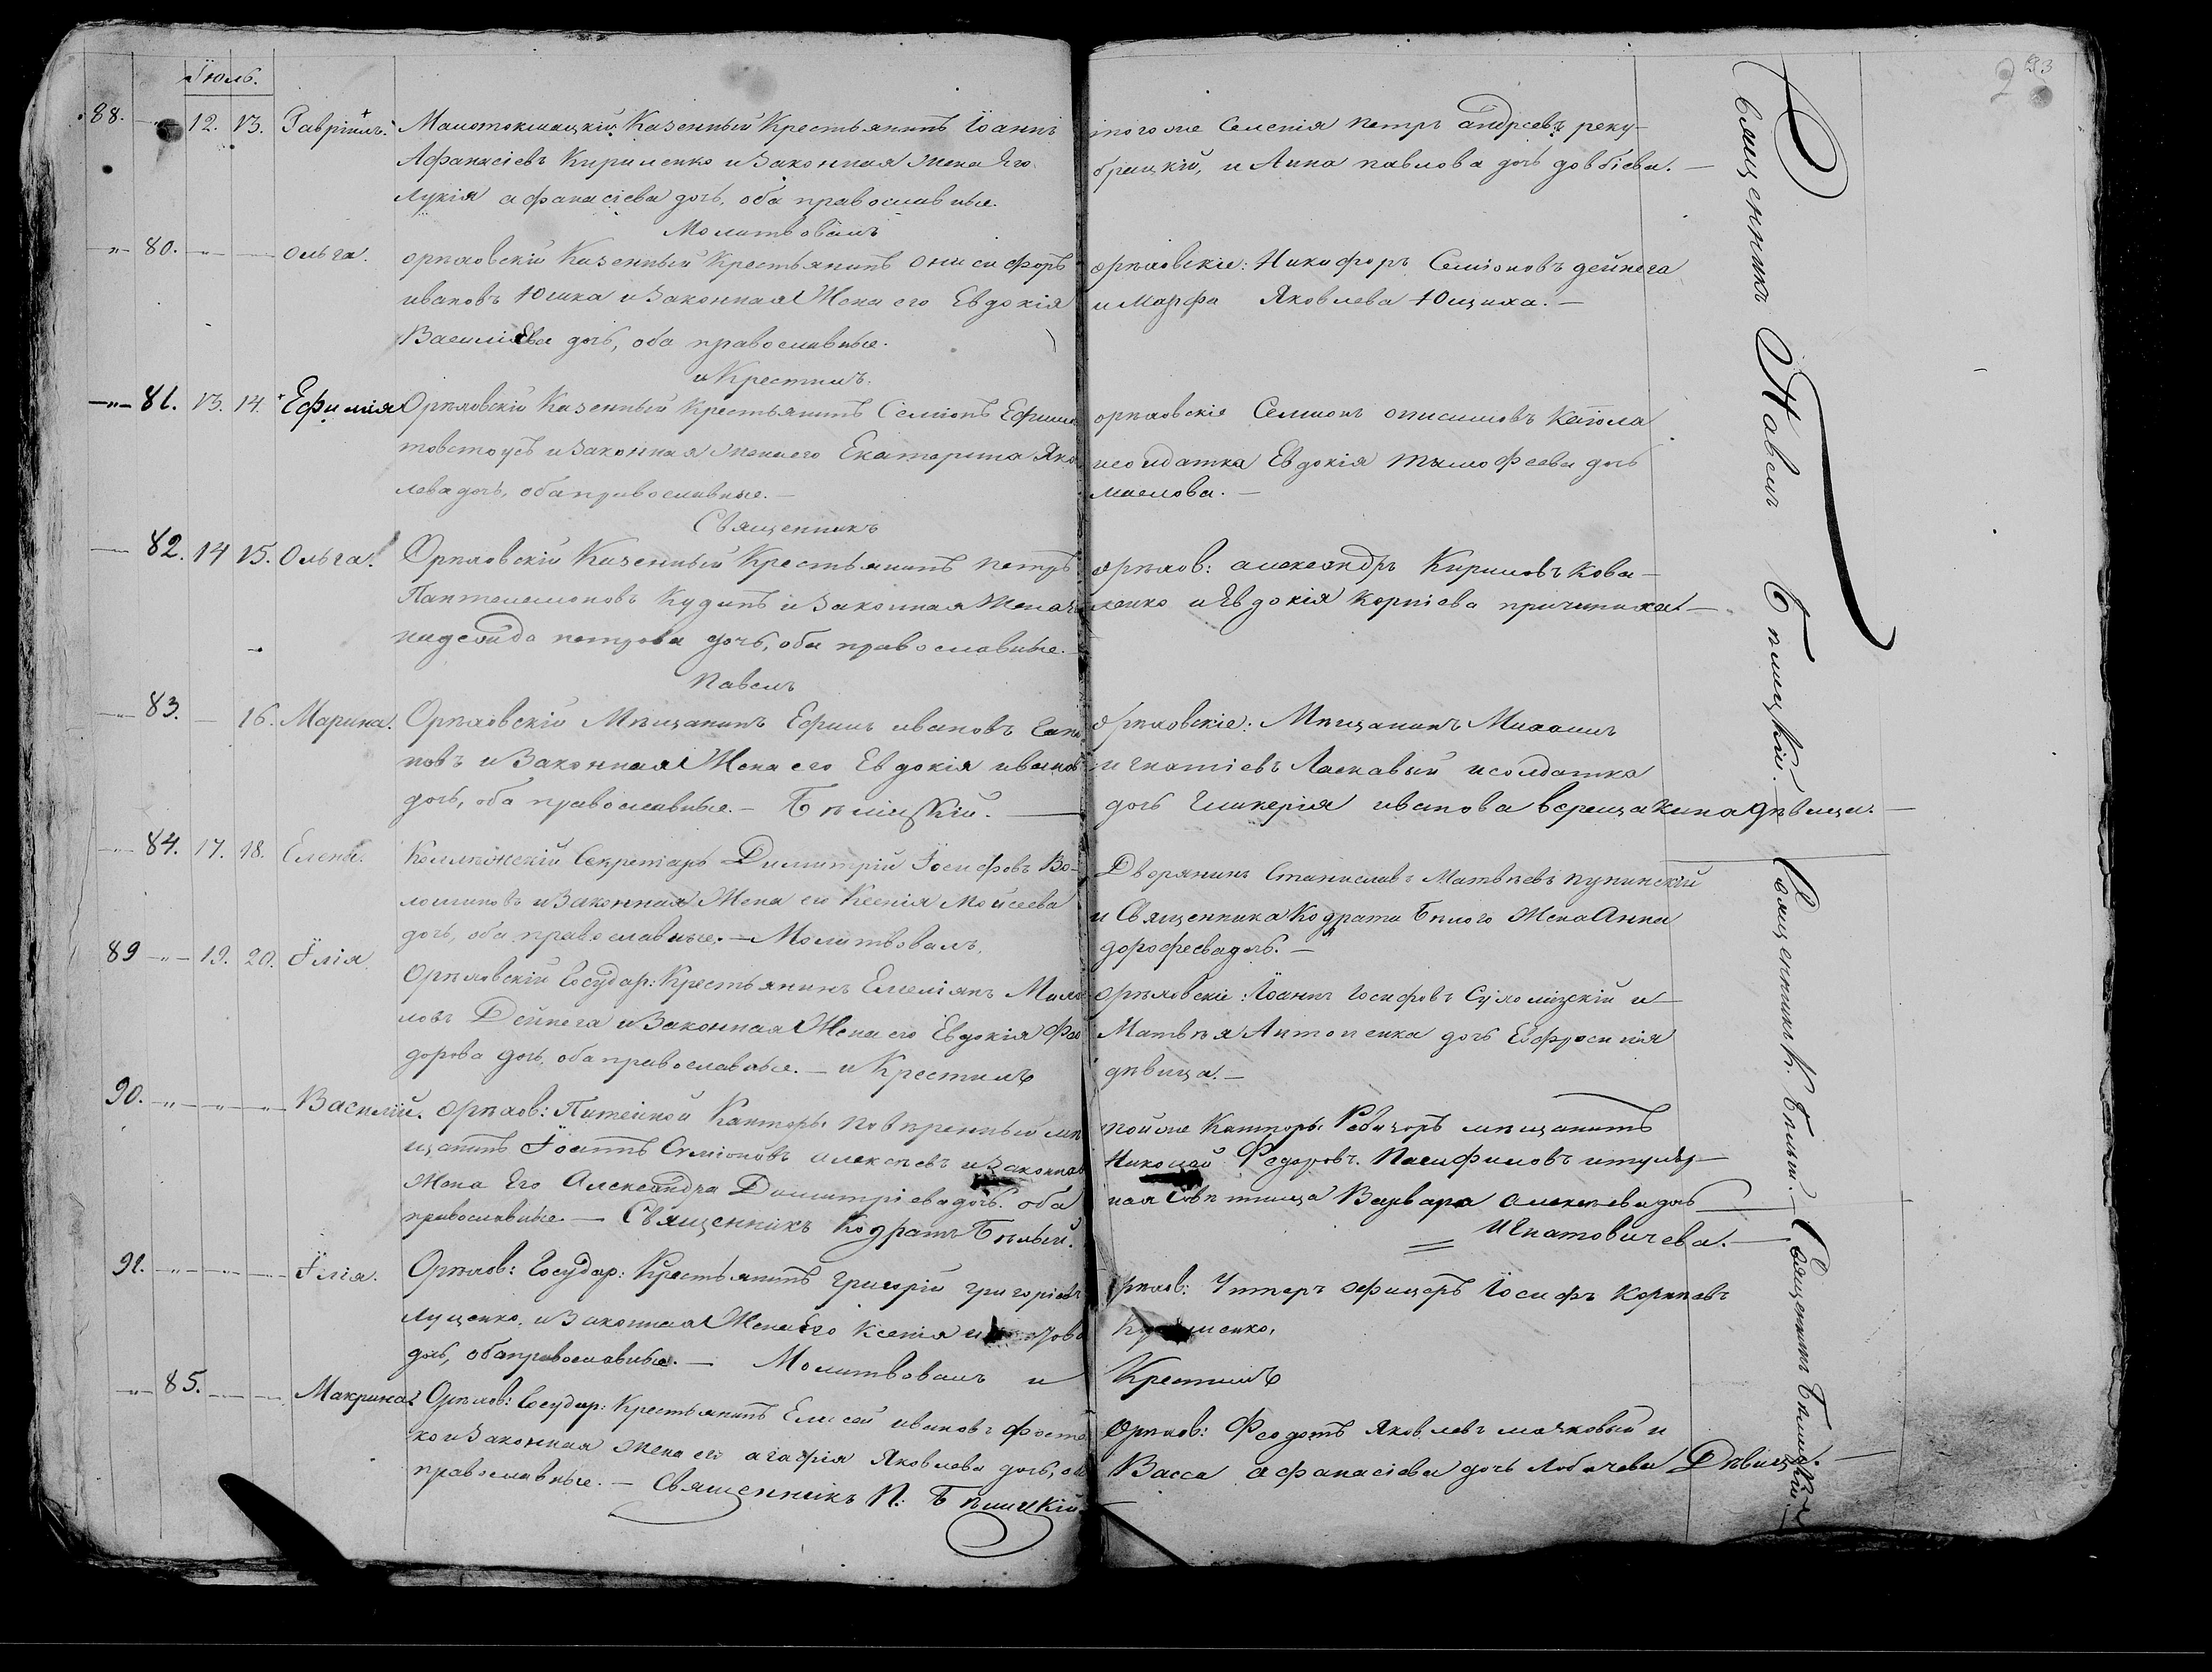 93
2
Іюль.
88. 12. 13. Гавріилъ. Малотокмацкій Казенный Крестьянинъ Іоаннъ
Афанасіевъ Кириленко и Законная жена Его
Лукія афанасіева дочь, оба православные.
тогоже Селенія петръ андреевъ реку-
брацкій, и Анна павлова дочь довбіева. —
Молитвовалъ
80. Ольга. орѣховскій Казенный Крестьянинъ онисифоръ
ивановъ Юшка и Законная Жена его Евдокія
Василіева дочь, оба православные.
орѣховскіе: Никифоръ Семіоновъ дейнега
и Марфа Яковлева Ющиха. —
и Крестилъ.
81. 13. 14. Ефимія Орѣховскій Казенный Крестьянинъ Семіонъ Ефимо
товстоусъ и Законная жена его Екатерина Яко
лева дочь, оба православные. —
орѣховскіе Семионъ онисимовъ
и солдатка Евдокія тимофеева дочь
маслова. —
Священникъ
82. 14 15. Ольга. Орѣховскій Казенный Крестьянинъ петръ
Пантелемоновъ Кудинъ и Законная Жена
петрова дочь, оба православные.
орѣхов: александръ Кириловъ Кова-
ленко и Евдокія Корніева причиниха. —
Павелъ
83. — 16. Марина. Орѣховскій Мѣщанинъ Ефимъ ивановъ
новъ и Законная Жена его Евдокія иванов
дочь, оба православные. — Бѣлицкій. —
орѣховскіе: Мѣщанинъ Михаилъ
игнатіевъ Ласкавый и солдатка
дочь Гликерія иванова верещакина дѣвица. —
84. 17. 18. Елена. Коллежскій Секретарь Димитрій Іосифовъ Во-
лошиновъ и Законная Жена его Ксенія Моисеева
дочь, оба православные. — Молитвовалъ,
Дворянинъ Станиславъ Матвѣевъ пупинскій
и Священника Кодрата Бѣлого Жена Анна
дорофеева дочь. —
89 19. 20. Ілія. Орѣховскій Государ: Крестьянинъ Емеліянъ
ловъ Дейнега и Законная Жена его Евдокія Фео
дорова дочь, оба православные. — и Крестилъ
орѣховскіе: Іоаннъ Іосифовъ и
Матвѣя Антоненка дочь Евфросинія
дѣвица. —
90. Василій. орѣхов: Питейной Канторы повѣренный мѣ
щанинъ Іоаннъ Симіоновъ алексѣевъ и Законная
Жена Его Александра Димитріева дочь, оба
православные. — Священникъ Кодратъ Бѣлый.
тойже Канторы Ревизоръ мѣщанинъ
Николай Федоровъ и титуляр-
ная Совѣтница Варвара алексѣева дочь
Игнатовичева. —
91. Ілія. Орѣхов: Государ: Крестьянинъ Григорій григоріевъ
Луценко, и Законная Жена Его Ксенія
дочь, оба православные. — Молитвовалъ и
орѣхов: Унтеръ Офицеръ Іосифъ Корнѣевъ
Крестилъ
85. Макрина. Орѣхов: Государ: Крестьянинъ Елисей ивановъ
ко и Законная жена его агафія Яковлева дочь, оба
православные. — Священникъ П: Бѣлицкій.
Орѣхов: Феодотъ Яковлевъ мачковый и
Васса афанасіева дочь Лобачева Дѣвица. —
Священникъ Павелъ Бѣлицкій.
Священникъ К. Бѣлый.
Священникъ Бѣлицкій.